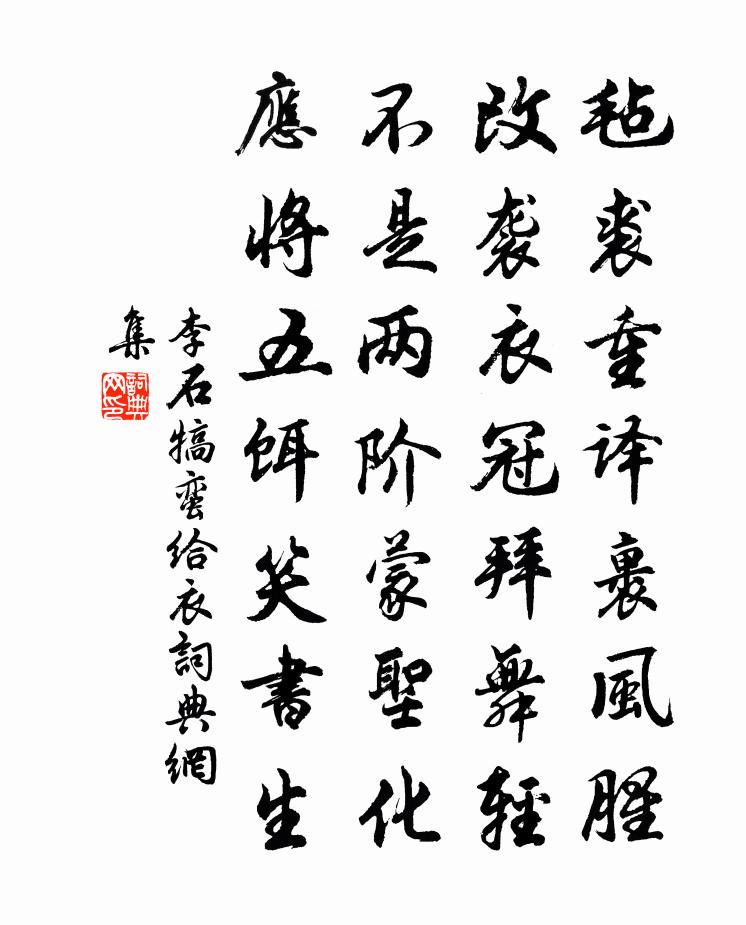 毡裘重译裹風腥
改袭衣冠拜舞輕
不是两阶蒙聖化
應將五餌笑書生
李石犒蛮给衣詞典網
集
詞典
网印